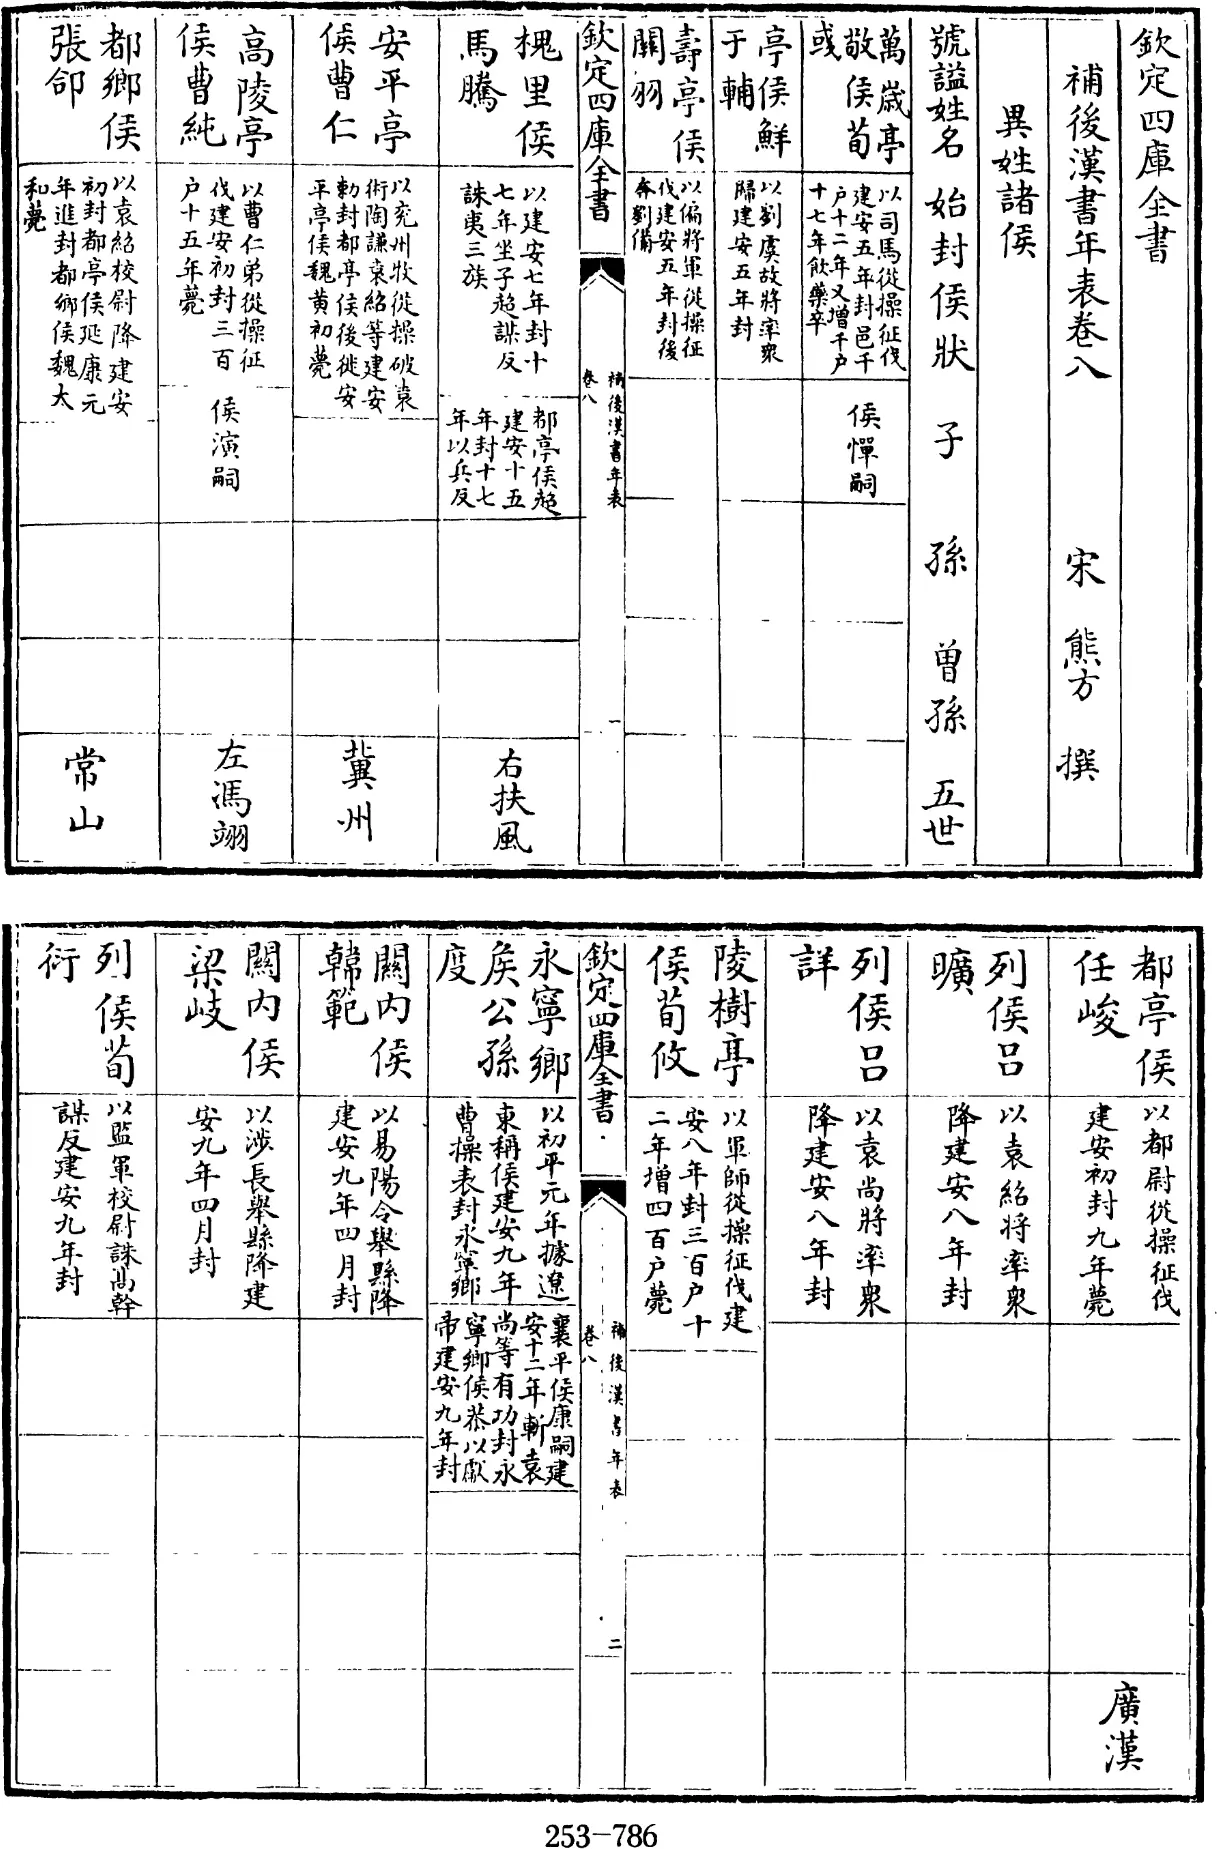 欽定四庫全書
補後漢書年表卷八
宋 熊方 撰
異姓諸侯
號謚姓名 始封侯狀 子 孫 曾孫 五世
萬歲亭
敬侯荀
彧
以司馬從操征伐
建安五年封邑千
户十二年又增千户
十七年飲藥卒
侯惲嗣
亭侯鮮
于輔
以劉虞故將率衆
歸建安五年封
壽亭侯
關羽
以偏將軍從操征
伐建安五年封後
奔劉備
欽定四庫全書
補後漢書年表
卷八
一
槐里侯
馬騰
以建安七年封十
七年坐子超謀反
誅夷三族
都亭侯超
建安十五
年封十七
年以兵反
右扶風
安平亭
侯曹仁
以兖州牧從操破袁
術陶謙袁紹等建安
勅封都亭侯後徙安
平亭侯魏黃初薨
冀州
高陵亭
侯曹純
以曹仁弟從操征
伐建安初封三百
户十五年薨
侯演嗣
左馮翊
都鄉侯
張郃
以袁紹校尉降建安
初封都亭侯延康元
年進封都鄉侯魏太
和薨
常山
都亭侯
任峻
以都尉從操征伐
建安初封九年薨
廣漢
列侯吕
曠
以袁紹將率衆
降建安八年封
列侯吕
詳
以袁尚將率衆
降建安八年封
陵樹亭
侯荀攸
以軍師從操征伐建
安八年封三百户十
二年增四百户薨
欽定四庫全書
補後漢書年表
卷八
二
永寧鄉
侯公孫
度
以初平元年據遼
東稱侯建安九年
曹操表封永寧鄉
襄平侯康嗣建
安十二年斬袁
尚等有功封永
寧鄉侯恭以獻
帝建安九年封
關内侯
韓範
以易陽令舉縣降
建安九年四月封
關内侯
梁岐
以涉長舉縣降建
安九年四月封
列侯荀
衍
以監軍校尉誅高幹
謀反建安九年封
253-786